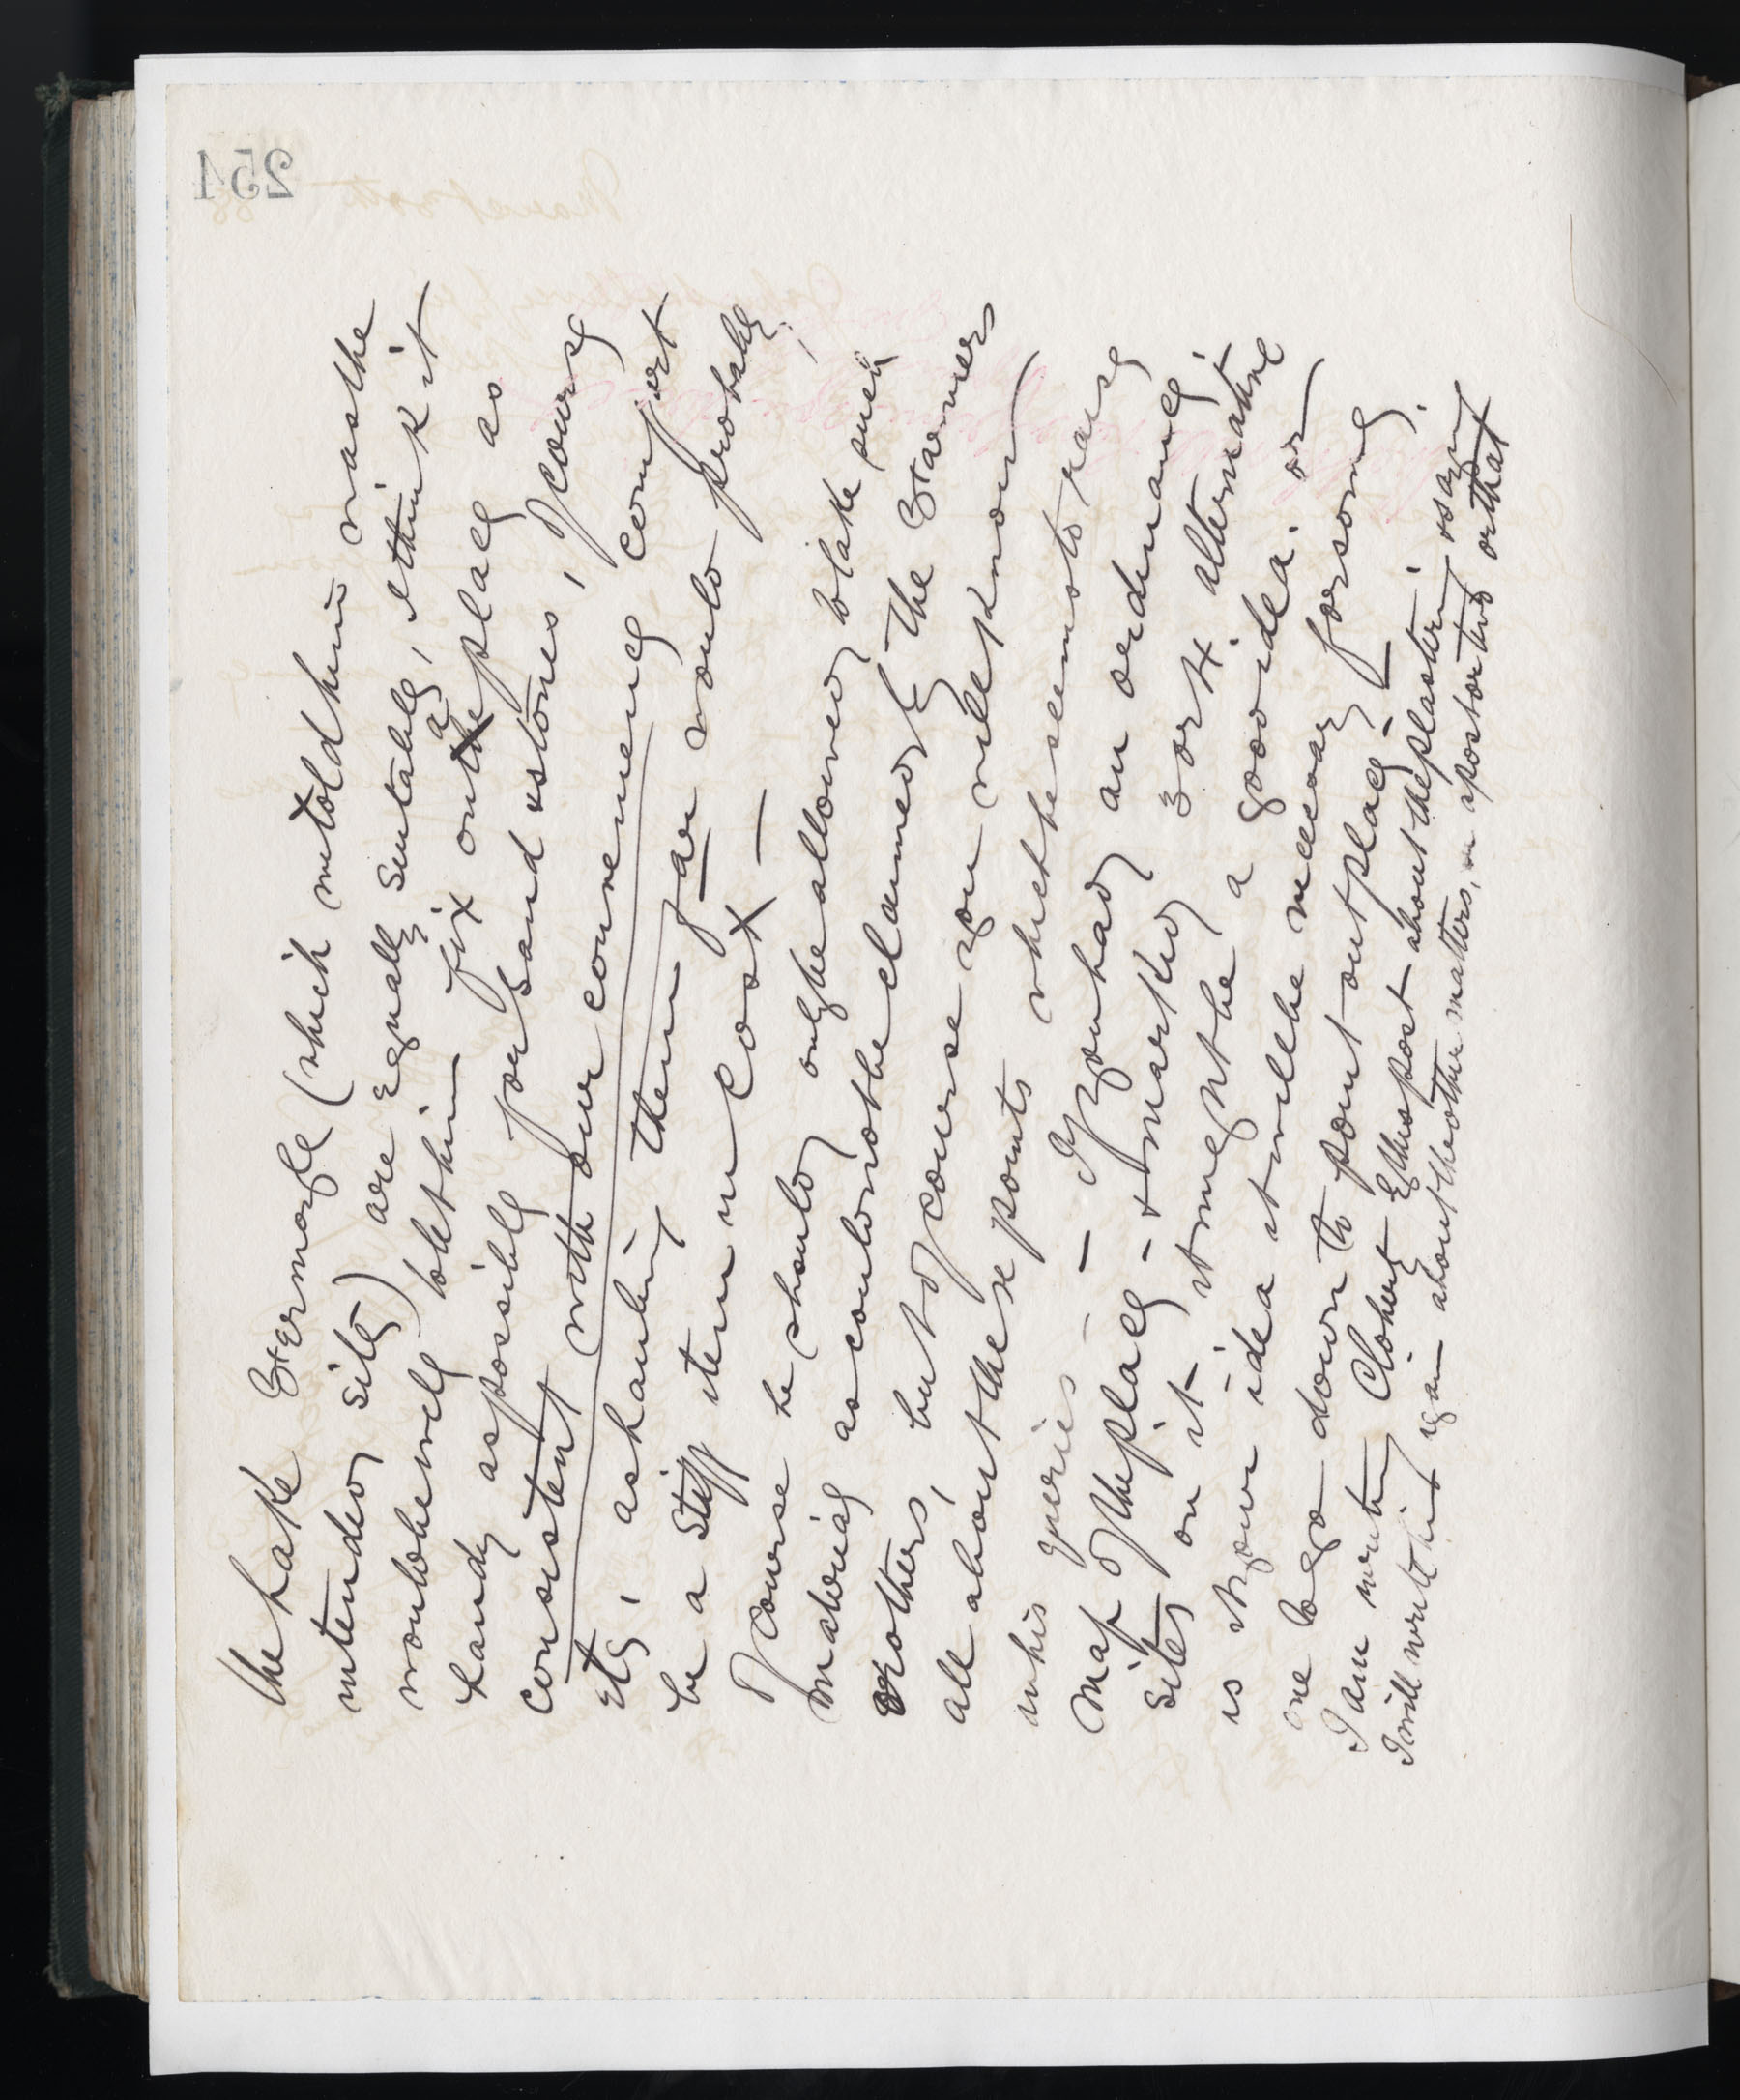 254
the Lake St ermorfe (which we told him was the
intended site) are equally suitable, I think it
would be well to let him fix on the a place as
handy as possible for Sand & stones, of course
consistent with our convenience comfort
etc, as hauling them far would probably
be a stiff item in cost —
Of course he should only be allowed to take such
material as could not be claimed by the Starmers
or others, but of course you will know
all about these points which he seems to raise
in his queries — If you had an ordnance
map of the place - & marked 3 or 4 alternative
sites on it it might be a good idea. or
is it your idea it will be necessary for some
one to go down to point out place? —
I am writing Clohert by this post about the plastering & saying
I will write him again about the other matters, in a post or two or that